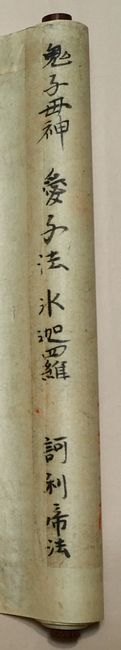 鬼子母神 愛子法 氷迦羅 訶利帝法